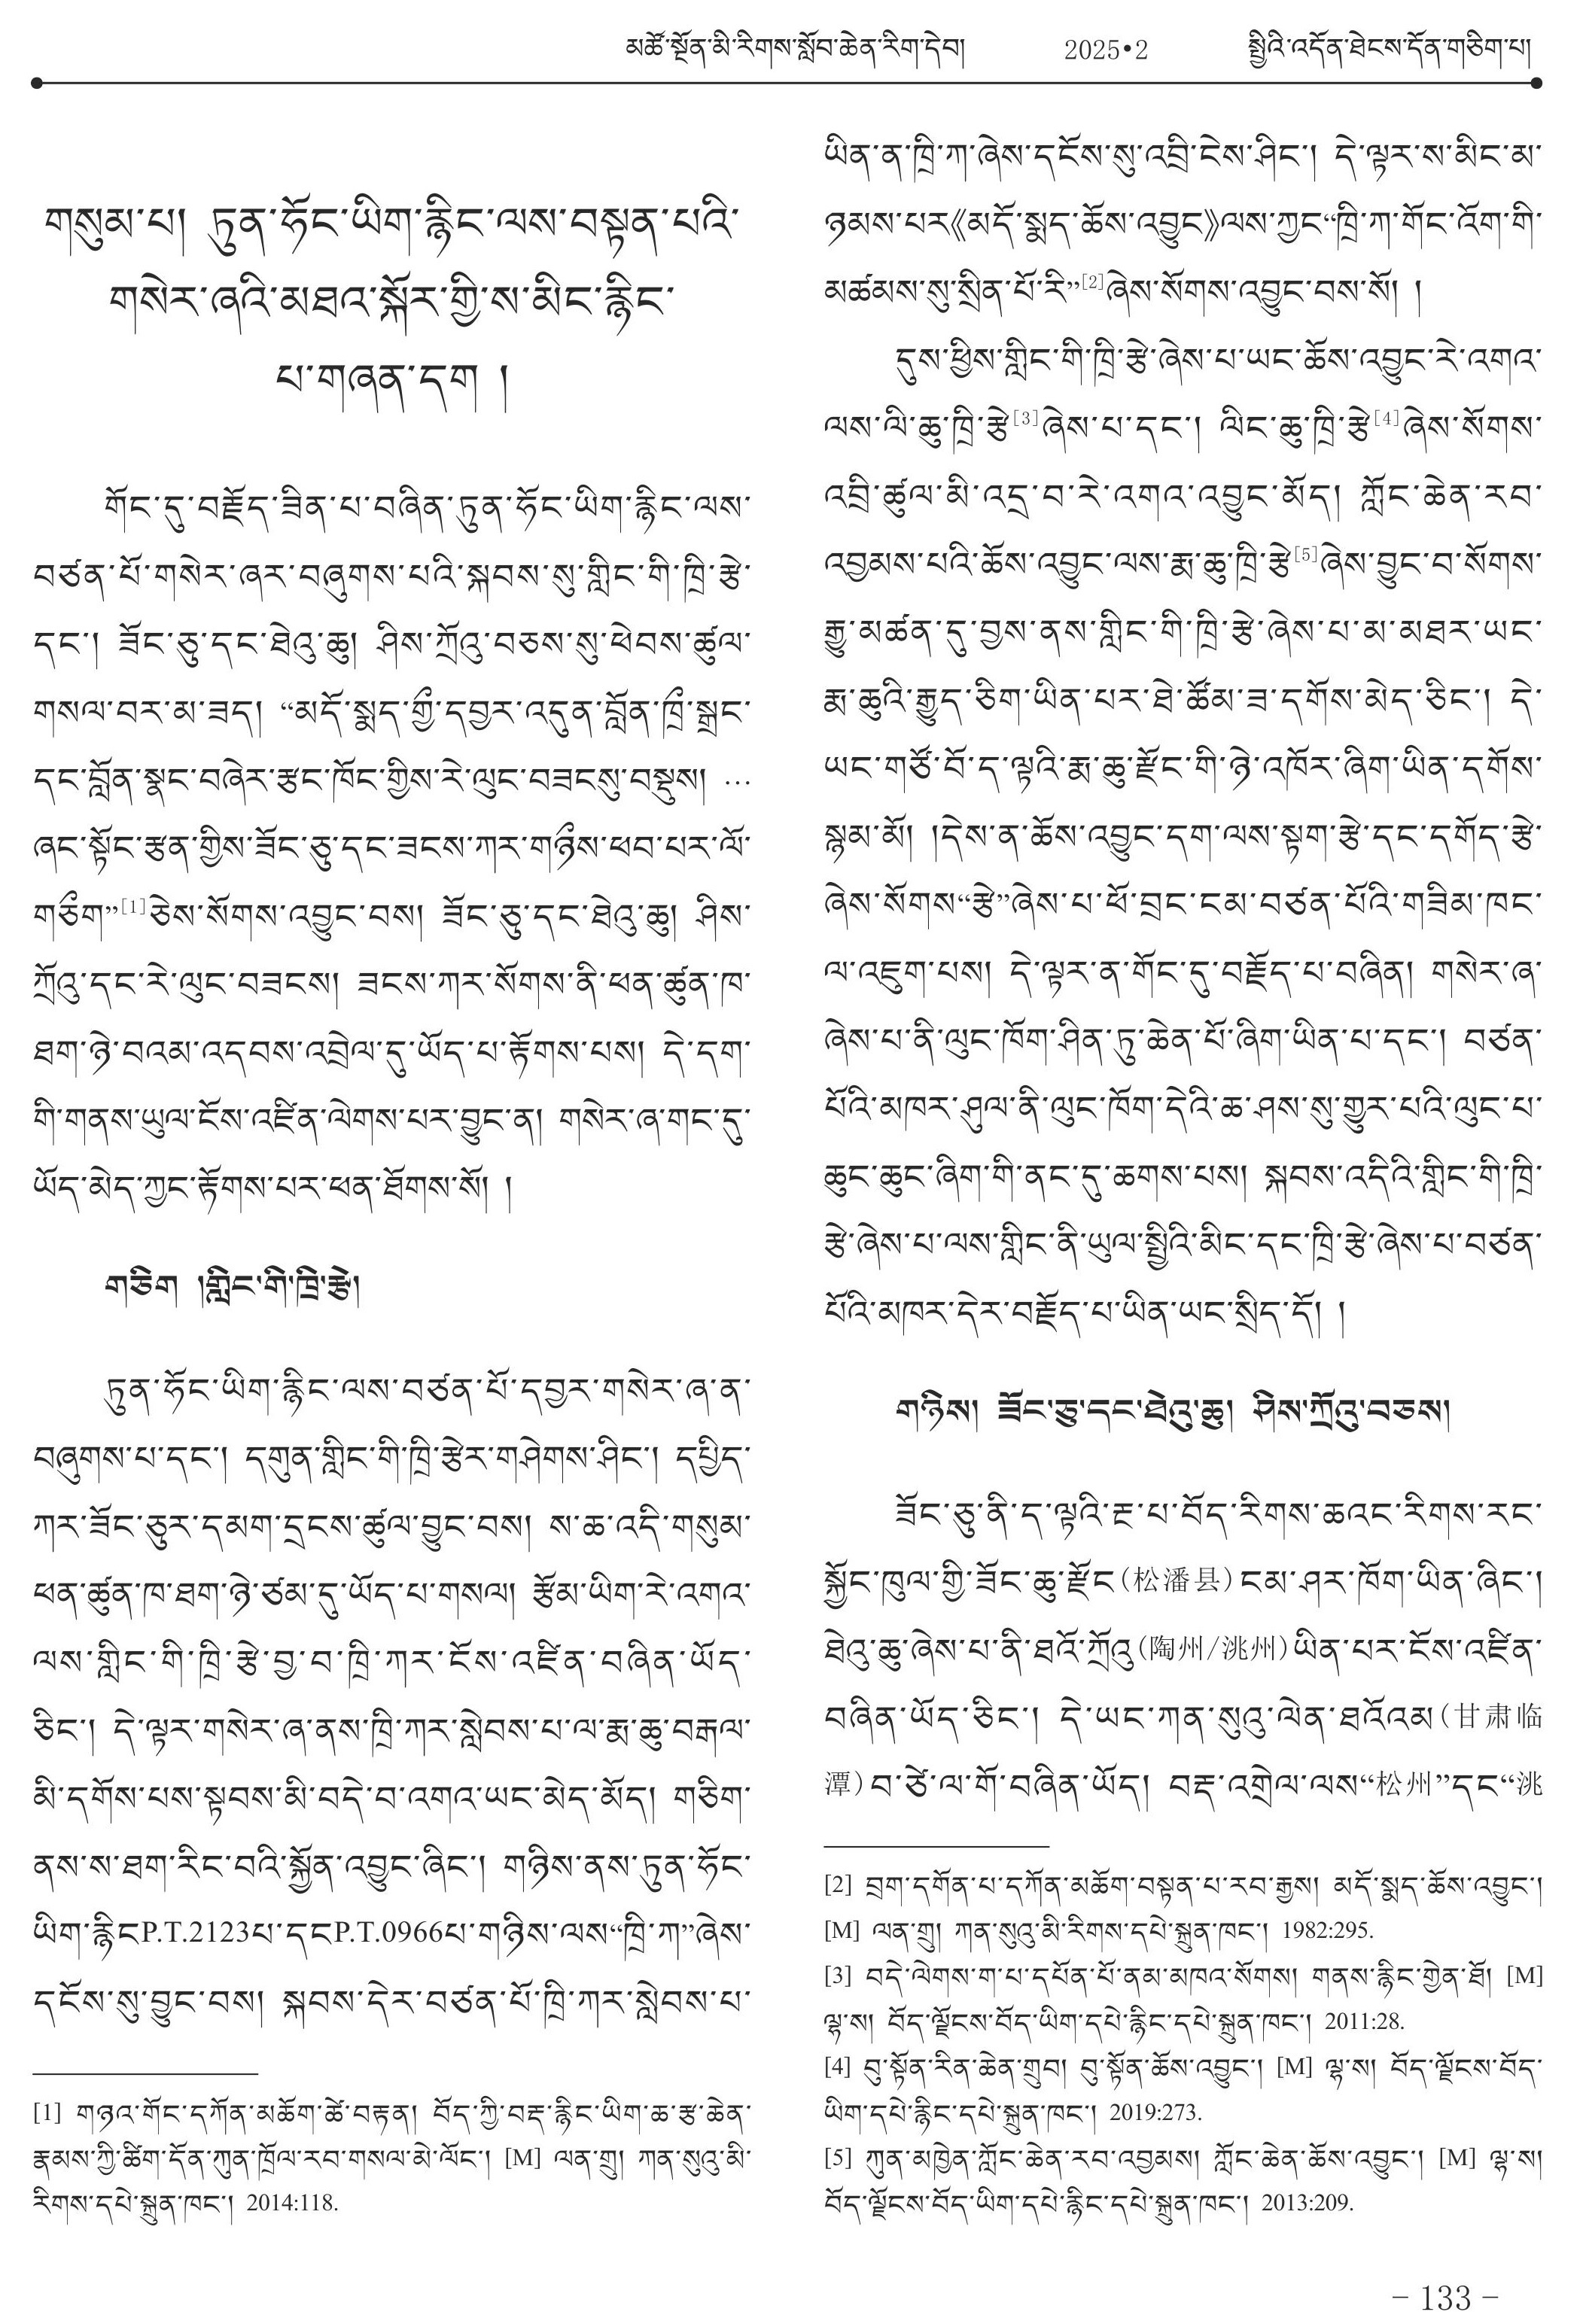 མཚོ་སྔོན་མི་རིགས་སློབ་ཆེན་རིག་དེབ། 2025•2 སྤྱིའི་འདོན་ཐེངས་དོན་གཅིག་པ།
གསུམ་པ། ཏུན་ཧོང་ཡིག་རྙིང་ལས་བསྟན་པའི་
གསེར་ཞའི་མཐའ་སྐོར་གྱི་ས་མིང་རྙིང་
པ་གཞན་དག །
གོང་དུ་བརྗོད་ཟིན་པ་བཞིན་ཏུན་ཧོང་ཡིག་རྙིང་ལས་
བཙན་པོ་གསེར་ཞར་བཞུགས་པའི་སྐབས་སུ་གླིང་གི་ཁྲི་རྩེ་
དང་། ཟོང་ཅུ་དང་ཐེའུ་ཆུ། ཤིས་ཀྲོའུ་བཅས་སུ་ཕེབས་ཚུལ་
གསལ་བར་མ་ཟད། “མདོ་སྨད་གྱྀ་དབྱར་འདུན་བློན་ཁྲྀ་སྒྲང་
དང་བློན་སྣང་བཞེར་རྩང་ཁོང་གྱིས་རེ་ལུང་བཟངསུ་བསྡུས། …
ཞང་སྟོང་རྩན་གྱིས་ཟོང་ཅུ་དང་ཟངས་ཀར་གཉྀས་ཕབ་པར་ལོ་
གཅྀག”[1]ཅེས་སོགས་འབྱུང་བས། ཟོང་ཅུ་དང་ཐེའུ་ཆུ། ཤིས་
ཀྲོའུ་དང་རེ་ལུང་བཟངས། ཟངས་ཀར་སོགས་ནི་ཕན་ཚུན་ཁ་
ཐག་ཉེ་བའམ་འདབས་འབྲེལ་དུ་ཡོད་པ་རྟོགས་པས། དེ་དག་
གི་གནས་ཡུལ་ངོས་འཛིན་ལེགས་པར་བྱུང་ན། གསེར་ཞ་གང་དུ་
ཡོད་མེད་ཀྱང་རྟོགས་པར་ཕན་ཐོགས་སོ། །
གཅིག །གླིང་གི་ཁྲི་རྩེ།
ཏུན་ཧོང་ཡིག་རྙིང་ལས་བཙན་པོ་དབྱར་གསེར་ཞ་ན་
བཞུགས་པ་དང་། དགུན་གླིང་གི་ཁྲི་རྩེར་གཤེགས་ཤིང་། དཔྱིད་
ཀར་ཟོང་ཅུར་དམག་དྲངས་ཚུལ་བྱུང་བས། ས་ཆ་འདི་གསུམ་
ཕན་ཚུན་ཁ་ཐག་ཉེ་ཙམ་དུ་ཡོད་པ་གསལ། རྩོམ་ཡིག་རེ་འགའ་
ལས་གླིང་གི་ཁྲི་རྩེ་བྱ་བ་ཁྲི་ཀར་ངོས་འཛིན་བཞིན་ཡོད་
ཅིང་། དེ་ལྟར་གསེར་ཞ་ནས་ཁྲི་ཀར་སླེབས་པ་ལ་རྨ་ཆུ་བརྒལ་
མི་དགོས་པས་སྟབས་མི་བདེ་བ་འགའ་ཡང་མེད་མོད། གཅིག་
ནས་ས་ཐག་རིང་བའི་སྐྱོན་འབྱུང་ཞིང་། གཉིས་ནས་ཏུན་ཧོང་
ཡིག་རྙིང་P.T.2123པ་དང་P.T.0966པ་གཉིས་ལས་“ཁྲི་ཀ”ཞེས་
དངོས་སུ་བྱུང་བས། སྐབས་དེར་བཙན་པོ་ཁྲི་ཀར་སླེབས་པ་
[1] གཉའ་གོང་དཀོན་མཆོག་ཚེ་བརྟན། བོད་ཀྱི་བརྡ་རྙིང་ཡིག་ཆ་རྩ་ཆེན་
རྣམས་ཀྱི་ཚིག་དོན་ཀུན་ཁྲོལ་རབ་གསལ་མེ་ལོང་། [M] ལན་གྲུ། ཀན་སུའུ་མི་
རིགས་དཔེ་སྐྲུན་ཁང་། 2014:118.
ཡིན་ན་ཁྲི་ཀ་ཞེས་དངོས་སུ་འབྲི་ངེས་ཤིང་། དེ་ལྟར་ས་མིང་མ་
ཉམས་པར《མདོ་སྨད་ཆོས་འབྱུང》ལས་ཀྱང་“ཁྲི་ཀ་གོང་འོག་གི་
མཚམས་སུ་སྲིན་པོ་རི”[2]ཞེས་སོགས་འབྱུང་བས་སོ། །
དུས་ཕྱིས་གླིང་གི་ཁྲི་རྩེ་ཞེས་པ་ཡང་ཆོས་འབྱུང་རེ་འགའ་
ལས་ལི་ཆུ་ཁྲི་རྩེ[3]ཞེས་པ་དང་། ལིང་ཆུ་ཁྲི་རྩེ[4]ཞེས་སོགས་
འབྲི་ཚུལ་མི་འདྲ་བ་རེ་འགའ་འབྱུང་མོད། ཀློང་ཆེན་རབ་
འབྱམས་པའི་ཆོས་འབྱུང་ལས་རྨ་ཆུ་ཁྲི་རྩེ[5]ཞེས་བྱུང་བ་སོགས་
རྒྱུ་མཚན་དུ་བྱས་ནས་གླིང་གི་ཁྲི་རྩེ་ཞེས་པ་མ་མཐར་ཡང་
རྨ་ཆུའི་རྒྱུད་ཅིག་ཡིན་པར་ཐེ་ཚོམ་ཟ་དགོས་མེད་ཅིང་། དེ་
ཡང་གཙོ་བོ་ད་ལྟའི་རྨ་ཆུ་རྫོང་གི་ཉེ་འཁོར་ཞིག་ཡིན་དགོས་
སྙམ་མོ། །དེས་ན་ཆོས་འབྱུང་དག་ལས་སྟག་རྩེ་དང་དགོད་རྩེ་
ཞེས་སོགས་“རྩེ”ཞེས་པ་ཕོ་བྲང་ངམ་བཙན་པོའི་གཟིམ་ཁང་
ལ་འཇུག་པས། དེ་ལྟར་ན་གོང་དུ་བརྗོད་པ་བཞིན། གསེར་ཞ་
ཞེས་པ་ནི་ལུང་ཁོག་ཤིན་ཏུ་ཆེན་པོ་ཞིག་ཡིན་པ་དང་། བཙན་
པོའི་མཁར་ཤུལ་ནི་ལུང་ཁོག་དེའི་ཆ་ཤས་སུ་གྱུར་པའི་ལུང་པ་
ཆུང་ཆུང་ཞིག་གི་ནང་དུ་ཆགས་པས། སྐབས་འདིའི་གླིང་གི་ཁྲི་
རྩེ་ཞེས་པ་ལས་གླིང་ནི་ཡུལ་སྤྱིའི་མིང་དང་ཁྲི་རྩེ་ཞེས་པ་བཙན་
པོའི་མཁར་དེར་བརྗོད་པ་ཡིན་ཡང་སྲིད་དོ། །
གཉིས། ཟོང་ཅུ་དང་ཐེའུ་ཆུ། ཤིས་ཀྲོའུ་བཅས།
ཟོང་ཅུ་ནི་ད་ལྟའི་རྔ་པ་བོད་རིགས་ཆའང་རིགས་རང་
སྐྱོང་ཁུལ་གྱི་ཟོང་ཆུ་རྫོང་(松潘县)ངམ་ཤར་ཁོག་ཡིན་ཞིང་།
ཐེའུ་ཆུ་ཞེས་པ་ནི་ཐའོ་ཀྲོའུ(陶州/洮州)ཡིན་པར་ངོས་འཛིན་
བཞིན་ཡོད་ཅིང་། དེ་ཡང་ཀན་སུའུ་ལེན་ཐའོའམ(甘肃临
潭)བ་ཙེ་ལ་གོ་བཞིན་ཡོད། བརྡ་འགྲེལ་ལས་“松州”དང་“洮
[2] བྲག་དགོན་པ་དཀོན་མཆོག་བསྟན་པ་རབ་རྒྱས། མདོ་སྨད་ཆོས་འབྱུང་།
[M] ལན་གྲུ། ཀན་སུའུ་མི་རིགས་དཔེ་སྐྲུན་ཁང་། 1982:295.
[3] བདེ་ལེགས་ག་པ་དཔོན་པོ་ནམ་མཁའ་སོགས། གནས་རྙིང་གྱེན་ཐོ། [M]
ལྷ་ས། བོད་ལྗོངས་བོད་ཡིག་དཔེ་རྙིང་དཔེ་སྐྲུན་ཁང་། 2011:28.
[4] བུ་སྟོན་རིན་ཆེན་གྲུབ། བུ་སྟོན་ཆོས་འབྱུང་། [M] ལྷ་ས། བོད་ལྗོངས་བོད་
ཡིག་དཔེ་རྙིང་དཔེ་སྐྲུན་ཁང་། 2019:273.
[5] ཀུན་མཁྱེན་ཀློང་ཆེན་རབ་འབྱམས། ཀློང་ཆེན་ཆོས་འབྱུང་། [M] ལྷ་ས།
བོད་ལྗོངས་བོད་ཡིག་དཔེ་རྙིང་དཔེ་སྐྲུན་ཁང་། 2013:209.
- 133 -